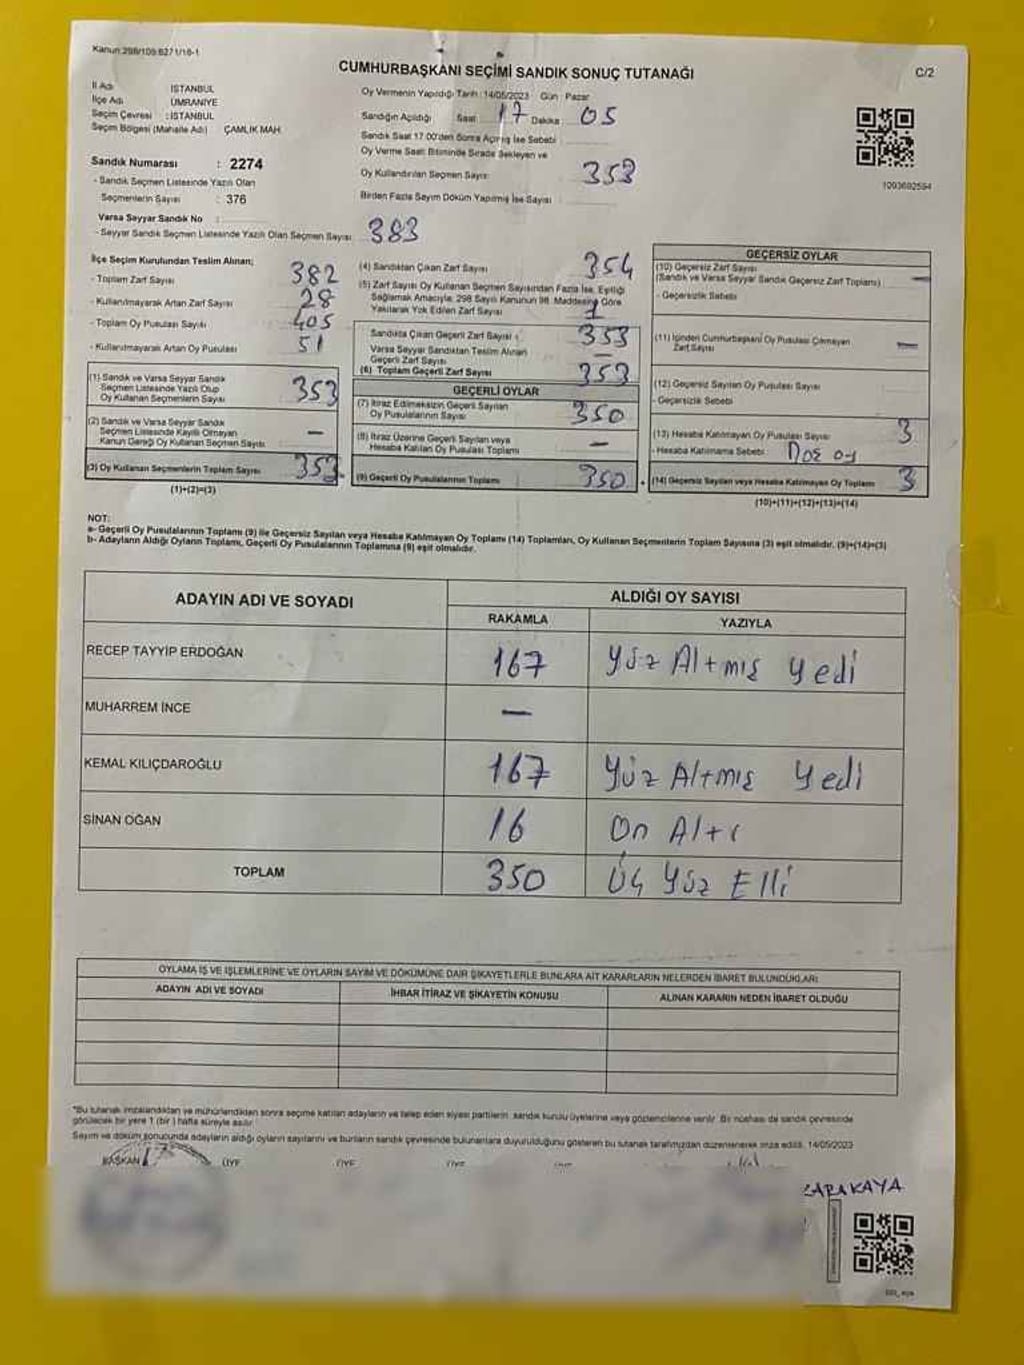 Kanun:298/109:6271/16-1
CUMHURBAŞKANI SEÇİMİ SANDIK SONUÇ TUTANAĞI
C/2
İl Adı İSTANBUL
İlçe Adı ÜMRANİYE
Seçim Çevresi : İSTANBUL
Seçim Bölgesi (Mahalle Adı) ÇAMLIK MAH.
Sandık Numarası : 2274
- Sandık Seçmen Listesinde Yazılı Olan
Seçmenlerin Sayısı : 376
Varsa Seyyar Sandık No :
- Seyyar Sandık Seçmen Listesinde Yazılı Olan Seçmen Sayısı 383
Oy Vermenin Yapıldığı Tarih : 14/05/2023 Gün : Pazar
Sandığın Açıldığı Saat : 17 Dakika : 05
Sandık Saat 17:00'den Sonra Açılmış İse Sebebi
Oy Verme Saati Bitiminde Sırada Bekleyen ve
Oy Kullandırılan Seçmen Sayısı 353
Birden Fazla Sayım Döküm Yapılmış İse Sayısı
1003692594
İlçe Seçim Kurulundan Teslim Alınan;
- Toplam Zarf Sayısı 382
- Kullanılmayarak Artan Zarf Sayısı 28
- Toplam Oy Pusulası Sayısı 405
- Kullanılmayarak Artan Oy Pusulası 51
(1) Sandık ve Varsa Seyyar Sandık
Seçmen Listesinde Yazılı Olup
Oy Kullanan Seçmenlerin Sayısı 353
(2) Sandık ve Varsa Seyyar Sandık
Seçmen Listesinde Kayıtlı Olmayan
Kanun Gereği Oy Kullanan Seçmen Sayısı —
(3) Oy Kullanan Seçmenlerin Toplam Sayısı 353
(1)+(2)=(3)
(4) Sandıktan Çıkan Zarf Sayısı 354
(5) Zarf Sayısı Oy Kullanan Seçmen Sayısından Fazla İse, Eşitliği
Sağlamak Amacıyla, 298 Sayılı Kanunun 98. Maddesine Göre
Yakılarak Yok Edilen Zarf Sayısı 1
Sandıkta Çıkan Geçerli Zarf Sayısı : 353
Varsa Seyyar Sandıktan Teslim Alınan
Geçerli Zarf Sayısı —
(6) Toplam Geçerli Zarf Sayısı 353
GEÇERLİ OYLAR
(7) İtiraz Edilmeksizin Geçerli Sayılan
Oy Pusulalarının Sayısı 350
(8) İtiraz Üzerine Geçerli Sayılan veya
Hesaba Katılan Oy Pusulası Toplamı —
(9) Geçerli Oy Pusulalarının Toplamı 350
GEÇERSİZ OYLAR
(10) Geçersiz Zarf Sayısı
(Sandık ve Varsa Seyyar Sandık Geçersiz Zarf Toplamı) —
- Geçersizlik Sebebi
(11) İçinden Cumhurbaşkanı Oy Pusulası Çıkmayan
Zarf Sayısı —
(12) Geçersiz Sayılan Oy Pusulası Sayısı
- Geçersizlik Sebebi
(13) Hesaba Katılmayan Oy Pusulası Sayısı 3
- Hesaba Katılmama Sebebi : Boş oy
(14) Geçersiz Sayılan veya Hesaba Katılmayan Oy Toplamı 3
(10)+(11)+(12)+(13)=(14)
NOT:
a- Geçerli Oy Pusulalarının Toplamı (9) ile Geçersiz Sayılan veya Hesaba Katılmayan Oy Toplamı (14) Toplamları, Oy Kullanan Seçmenlerin Toplam Sayısına (3) eşit olmalıdır. (9)+(14)=(3)
b- Adayların Aldığı Oyların Toplamı, Geçerli Oy Pusulalarının Toplamına (9) eşit olmalıdır.
ADAYIN ADI VE SOYADI ALDIĞI OY SAYISI
RAKAMLA YAZIYLA
RECEP TAYYİP ERDOĞAN 167 Yüz Altmış Yedi
MUHARREM İNCE —
KEMAL KILIÇDAROĞLU 167 Yüz Altmış Yedi
SİNAN OĞAN 16 On Altı
TOPLAM 350 Üç Yüz Elli
OYLAMA İŞ VE İŞLEMLERİNE VE OYLARIN SAYIM VE DÖKÜMÜNE DAİR ŞİKAYETLERLE BUNLARA AİT KARARLARIN NELERDEN İBARET BULUNDUKLARI
ADAYIN ADI VE SOYADI İHBAR İTİRAZ VE ŞİKAYETİN KONUSU ALINAN KARARIN NEDEN İBARET OLDUĞU
*Bu tutanak imzalandıktan ve mühürlendikten sonra seçime katılan adayların ve talep eden siyasi partilerin sandık kurulu üyelerine veya gözlemcilerine verilir. Bir nüshası da sandık çevresinde
görülecek bir yere 1 (bir) hafta süreyle asılır.
Sayım ve döküm sonucunda adayların aldığı oyların sayılarını ve bunların sandık çevresinde bulunanlara duyurulduğunu gösteren bu tutanak tarafımızdan düzenlenerek imza edildi. 14/05/2023
BAŞKAN ÜYE ÜYE ÜYE
KARAKAYA